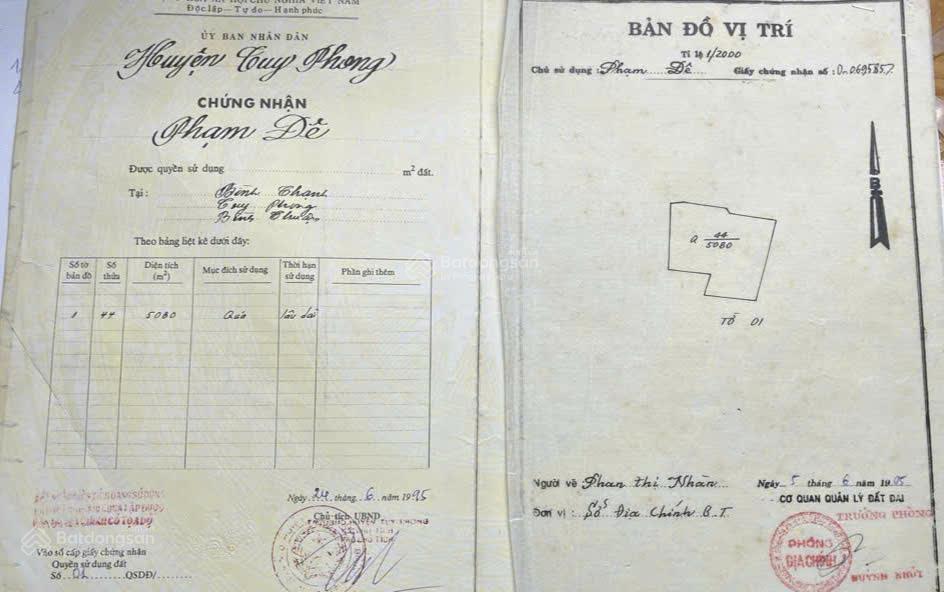 CỘNG HÒA XÃ HỘI CHỦ NGHĨA VIỆT NAM
Độc lập – Tự do – Hạnh phúc
ỦY BAN NHÂN DÂN
Huyện Tuy Phong
CHỨNG NHẬN
Phạm Dê
Được quyền sử dụng m² đất.
Tại : Bình Thạnh
Tuy Phong
Bình Thuận
Theo bảng liệt kê dưới đây:
Số tờ bản đồ Số thửa Diện tích (m²) Mục đích sử dụng Thời hạn sử dụng Phần ghi thêm
1 44 5080 Quả lâu dài
Ngày 24 tháng 6 năm 1995
Chủ tịch UBND
Vào sổ cấp giấy chứng nhận
Quyền sử dụng đất
Số 01 QSDĐ/
Batdongsan
BẢN ĐỒ VỊ TRÍ
Tỉ lệ 1/2000
Chủ sử dụng : Phạm Dê Giấy chứng nhận số : 0695857
B
Q 44
5080
TỜ 01
Batdongsan
Người vẽ Phan thị Nhàn Ngày 5 tháng 6 năm 1995
CƠ QUAN QUẢN LÝ ĐẤT ĐAI
Đơn vị : Sở Địa Chính B.T.
TRƯỞNG PHÒNG
PHÒNG
ĐỊA CHÍNH
Batdongsan